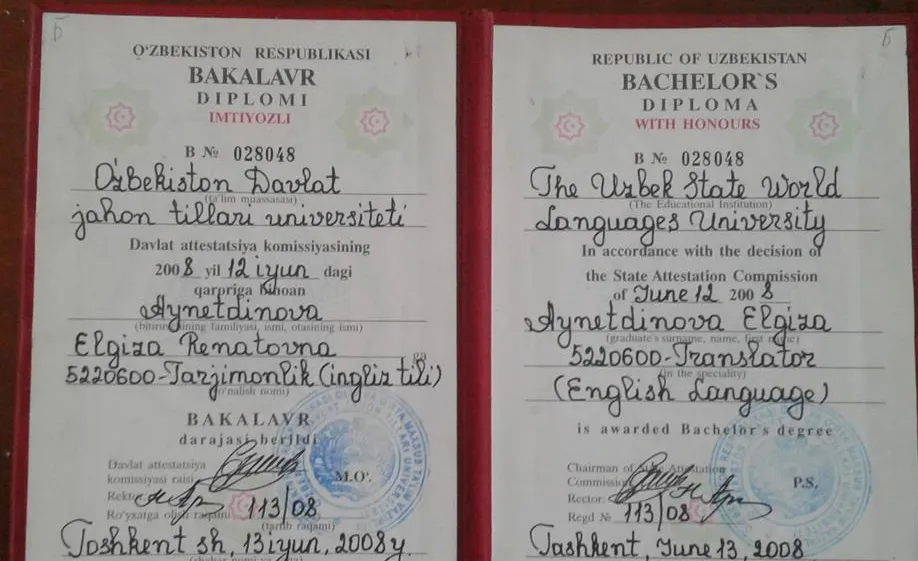 O‘ZBEKISTON RESPUBLIKASI
BAKALAVR
DIPLOMI
IMTIYOZLI
B № 028048
O'zbekiston Davlat
(ta'lim muassasasi)
jahon tillari universiteti
Davlat attestatsiya komissiyasining
2008 yil 12 iyun dagi
qarorıga binoan
Aynetdinova
(bitiruvchining familiyasi, ismi, otasining ismi)
Elgiza Renatovna ga
5220600-Tarjimonlik (ingliz tili)
(yo'nalish nomi)
BAKALAVR
darajasi berildi
Davlat attestatsiya
komissiyasi raisi
M.O‘.
Rektor
Ro‘yxatga olish raqami 113/08
(tartib raqami)
Toshkent sh, 13 iyun, 2008 y.
Б
REPUBLIC OF UZBEKISTAN
BACHELOR`S
DIPLOMA
WITH HONOURS
B № 028048
The Uzbek State World
(The Educational Institution)
Languages University
In accordance with the decision of
the State Attestation Commission
of June 12 2008
Aynetdinova Elgiza
(graduate's surname, name, first name)
5220600-Translator
(in the speciality)
(English Language)
is awarded Bachelor's degree
Chairman of State Attestation
Commission
P.S.
Rector:
Regd № 113/08
Tashkent, June 13, 2008